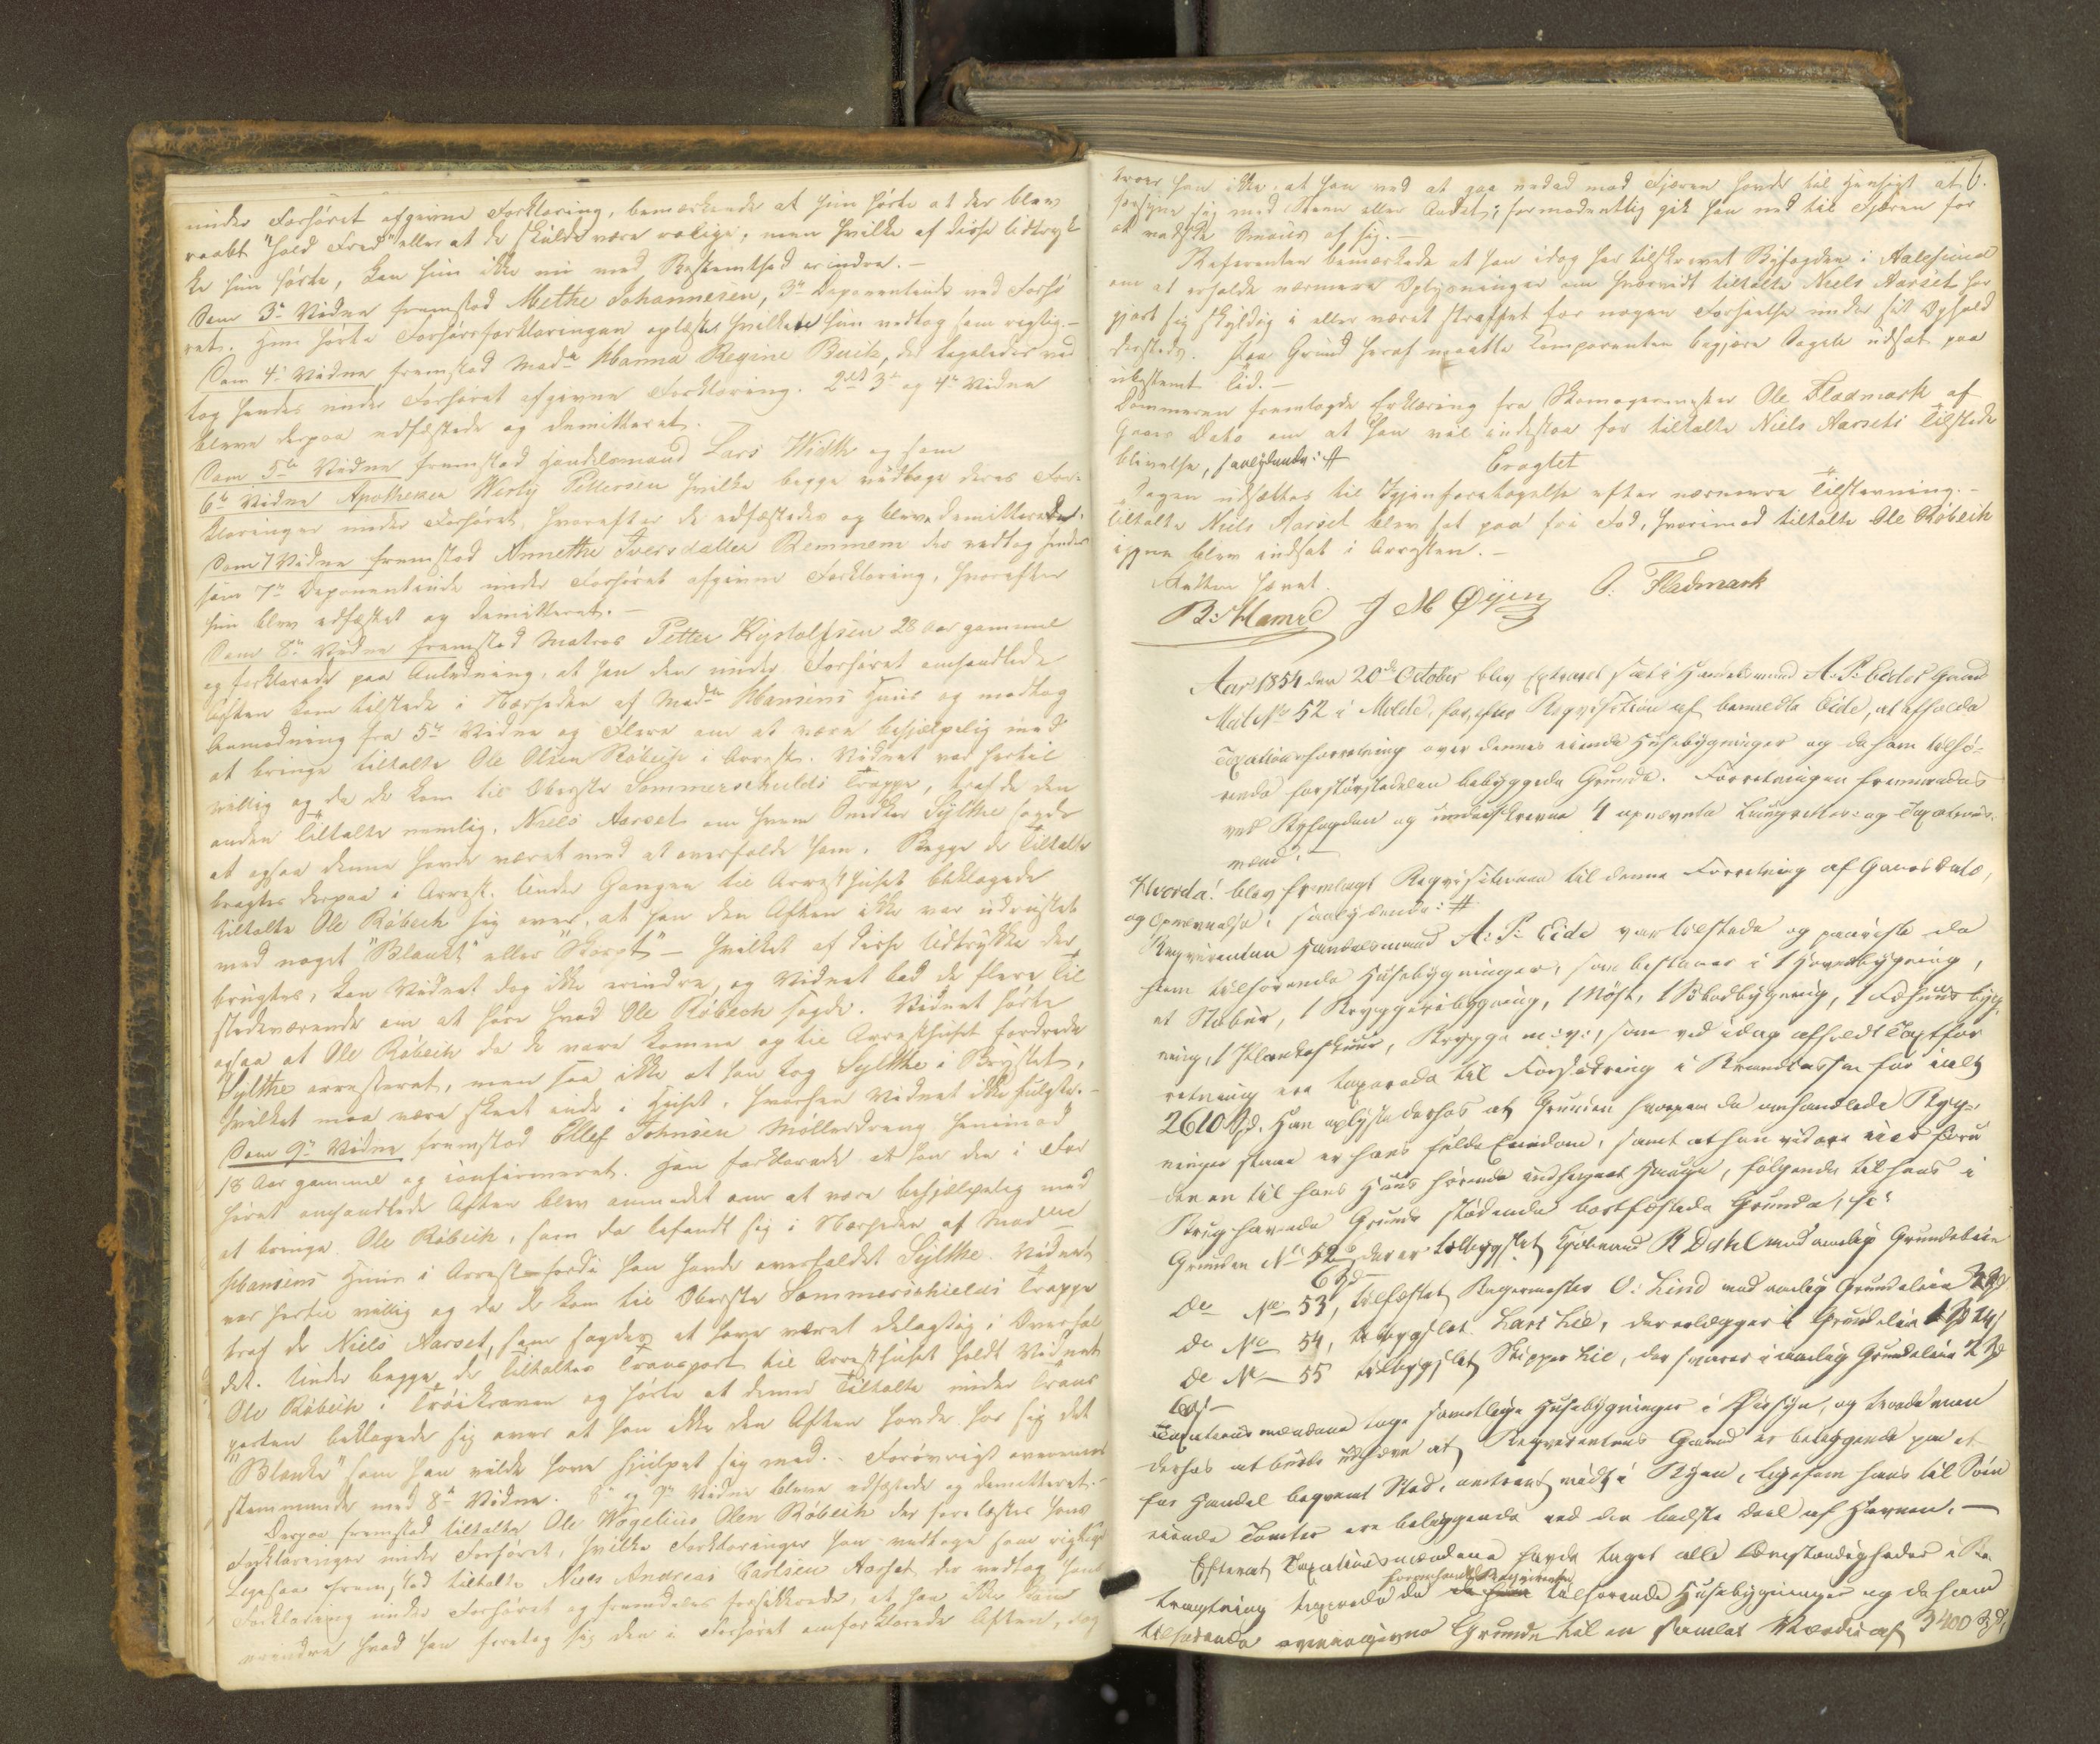 under Forhøret afgivne Forklaring, bemærkende at hun hørte at der blev
raabt "hold Fred" eller at de skulde være rolige, men hvilke af disse Udtryk
ke hun hørte, kan hun ikke nu med Bestemthed erindre. –
Som 3die Vidne fremstod Methe Johannesen, 3die Deponentinde ved Forhø
ret. Hun hørte Forhørsforklaringen oplæst, hvilken hun vedtog som rigtig. –
Som 4de Vidne fremstod Madm Hanna Regine Buck, der ligeledes ved
tog hendes under Forhøret afgivne Forklaring. 2det 3die og 4de Vidne
bleve derpaa edfæstede og demitteret.
Som 5te Vidne fremstod Handelsmand Lars With og som
6te Vidne Apotheker Werly Pettersen hvilke begge vedtoge deres For-
klaringer under Forhøret, hvorefter de edfæstedes og bleve demitterede.
Som 7 Vidne fremstod Annethe Iversdatter Remmem der vedtog hendes
som 7de Deponentinde under Forhøret afgivne Forklaring, hvorefter
hun blev edfæstet og demitteret. –
Som 8de Vidne fremstod Matros Petter Kystolfsen 28 Aar gammel
og forklarede paa Anledning, at han den under Forhøret omhandlede
Aften kom tilstede i Nærheden af Madm Hansens Huus og modtog
Anmodning fra 5te Vidne og Flere om at være behjælpelig med
at bringe tiltalte Ole Olsen Røbech i Arrest. Vidnet var hertil
villig og da de kom til Oberste Sommerschields Trappe, traf de den
anden Tiltalte nemlig, Niels Aarset om hvem Snedker Sylthe sagde
at ogsaa denne havde været med at overfalde ham. Begge de Tiltalte
bragtes derpaa i Arrest. Under Gangen til Arresthuset beklagede
tiltalte Ole Røbech sig over, at han den Aften ikke var udrustet
med noget "Blankt" eller "Skarpt" – hvilket af disse Udtrykke der
brugtes, kan Vidnet dog ikke erindre, og Vidnet bad de flere Til
stedeværende om at høre hvad Ole Røbech sagde. Vidnet hørte
ogsaa at Ole Røbech da de vare komne op til Arresthuset fordrede
Sylthe arresteret, men saa ikke at han tog Sylthe i Brystet,
hvilket maa være skeet inde i Huset, hvorhen Vidnet ikke fulgte. –
Som 9de Vidne fremstod Ellef Johnsen Møllerdreng
18 Aar gammel og confirmeret. Han forklarede at han den i For
høret omhandlede Aften blev anmodet om at være behjælpelig med
at bringe Ole Røbech, som da befandt sig i Nærheden af Madm
Hansens Huus i Arrest fordi han havde overfaldet Sylthe. Vidnet
var hertil villig og da de kom til Oberste Sommerschields Trappe
traf de Niels Aarset, som sagdes at have været delagtig i Overfal
det. Under begge de Tiltaltes Transport til Arresthuset holdt Vidnet
Ole Røbech i Trøiekraven og hørte at denne Tiltalte under Trans
porten beklagede sig over at han ikke den Aften havde hos sig det
"Blanke" som han vilde have hjulpet sig med. Forøvrigt overeens
stemmende med 8de Vidne. 8de og 9de Vidne bleve edfæstede og demitteret. –
Derpaa fremstod tiltalte Ole Wogelius Olsen Røbech der forelæstes hans
Forklaringer under Forhøret, hvilke Forklaringer han vedtoge som rigtige
Ligesaa fremstod tiltalte Niels Andreas Carlsen Aarset der vedtog hans
Forklaring under Forhøret og fremdeles forsikkrede, at han ikke kan
erindre hvad han foretog sig den i Forhøret omforklarede Aften, dog
6.
troer han ikke, at han ved at gaa nedad mod Fjæren havde til Hensigt at
forsyne sig med Steen eller Andet; formodentlig gik han ned til Fjæren for
at vadske Smuds af sig. –
Referenten bemærkede at han idag har tilskrevet Byfogden i Aalesund
om at erholde nærmere Oplysninger om hvorvidt tiltalte Niels Aarset har
gjort sig skyldig i eller været straffet for nogen Forseelse under sit Ophold
dersteds. Paa Grund heraf maatte Comparenten begjære Sagen udsat paa
ubestemt Tid. –
Dommeren fremlagde Erklæring fra Skomagermester Ole Fladmark af
Gaars Dato om at han vil indestaa for tiltalte Niels Aarsets Tilstede
blivelse, saalydende: #
Eragtet
Sagen udsættes til Igjenforetagelse efter nærmere Tilstevning. –
Tiltalte Niels Aarset blev sat paa fri Fod, hvorimod tiltalte Ole Røbech
igjen blev indsat i Arresten. –
Retten hævet.
B: Hamre J M Øyen O. Fladmark
Aar 1854 den 20de October blev Extraret sat i Handelsmand A: P: Eides Gaard
Mat No 52 i Molde, for, efter Reqvisition af bemeldte Eide, at afholde
Taxationsforretning over dennes eiende Huusebygninger og de ham tilhø-
rende for størstedelen bebyggede Grunde. Forretningen fremmedes
ved Byfogden og underskrevne 4 opnævnte Laugrettes- og Taxations-
mænd. –
Hvorda! blev fremlagt Reqvisitionen til denne Forretning af Gaars Dato,
og Opnævnelse, saalydende: #.
Reqvirenten Handelsmand A: P: Eide var tilstede og paaviste de
ham tilhørende Huusebygninger, som bestaaer i 1 Hovedbygning,
et Stabur, 1 Bryggeribygning, 1 Nøst, 1 Søbodbygning, 1 Fæhuusbyg
ning, 1 Plankeskuur, Brygge m: v:, som ved idag afholdt Taxtfor
retning ere taxerede til Forsikring i Brandcassen for ialt
2610 Spd. Han oplyste derhos at Grunden hvorpaa de omhandlede Byg-
ninger staae er hans fulde Eiendom, samt at han videre eier foru
den en til hans Huus hørende indhegnet Hauge, følgende til hans i
Brug havende Grunde stødende bortfæstede Grunde, sc:
Grunden No 52b, der er tilbygslet Kjøbmand R Dahl mod aarlig Grundeleie
6 Spd –
do No 53, tilfæstet Bagermester O: Lind mod aarlig Grundeleie 3 Spd
do No 54, tilbygslet Lars Lie, der erlægger i Grundeleie 1 Spd 24 s
do No 55 tilbygslet Skipper Lie, der svarer i aarlig Grundeleie 2 Spd
60 s –
Taxationsmændene toge samtlige Huusebygninger i Øiesyn, og troede man
derhos at burde udhæve at Reqvirentens Gaard er beliggende paa et
for Handel beqvemt Sted, omtrent midt i Byen, ligesom hans til Søen
eiende Tomter ere beliggende ved den bedste Deel af Havnen. –
Efterat Taxationsmændene havde taget alle Omstændigheder i Be
tragtning taxerede de forommeldte Reqvirenten tilhørende Huusebygninger og de ham
tilhørende ovennævnte Grunde til en samlet Værdie af 3400 Spd,